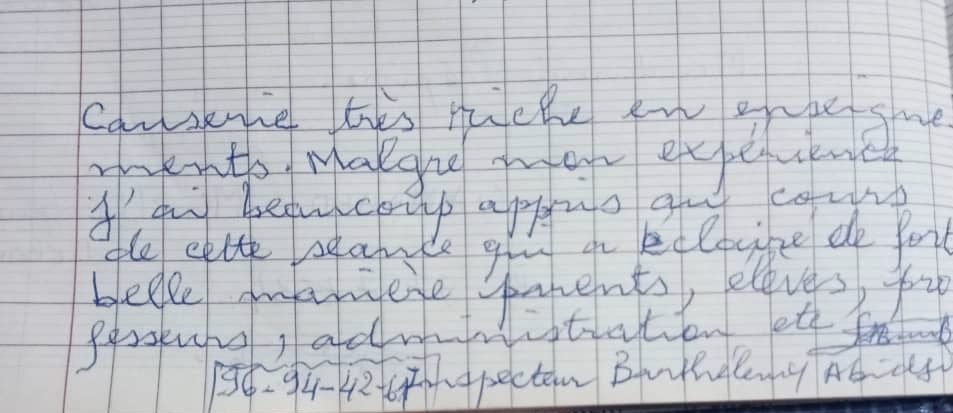 Causerie très riche en enseigne
ments. Malgré mon expérience
j'ai beaucoup appris au cours
de cette séance qui a éclairé de fort
belle manière parents, élèves, pro
fesseurs, administration etc
96-94-42-61 Inspecteur Barthélemy